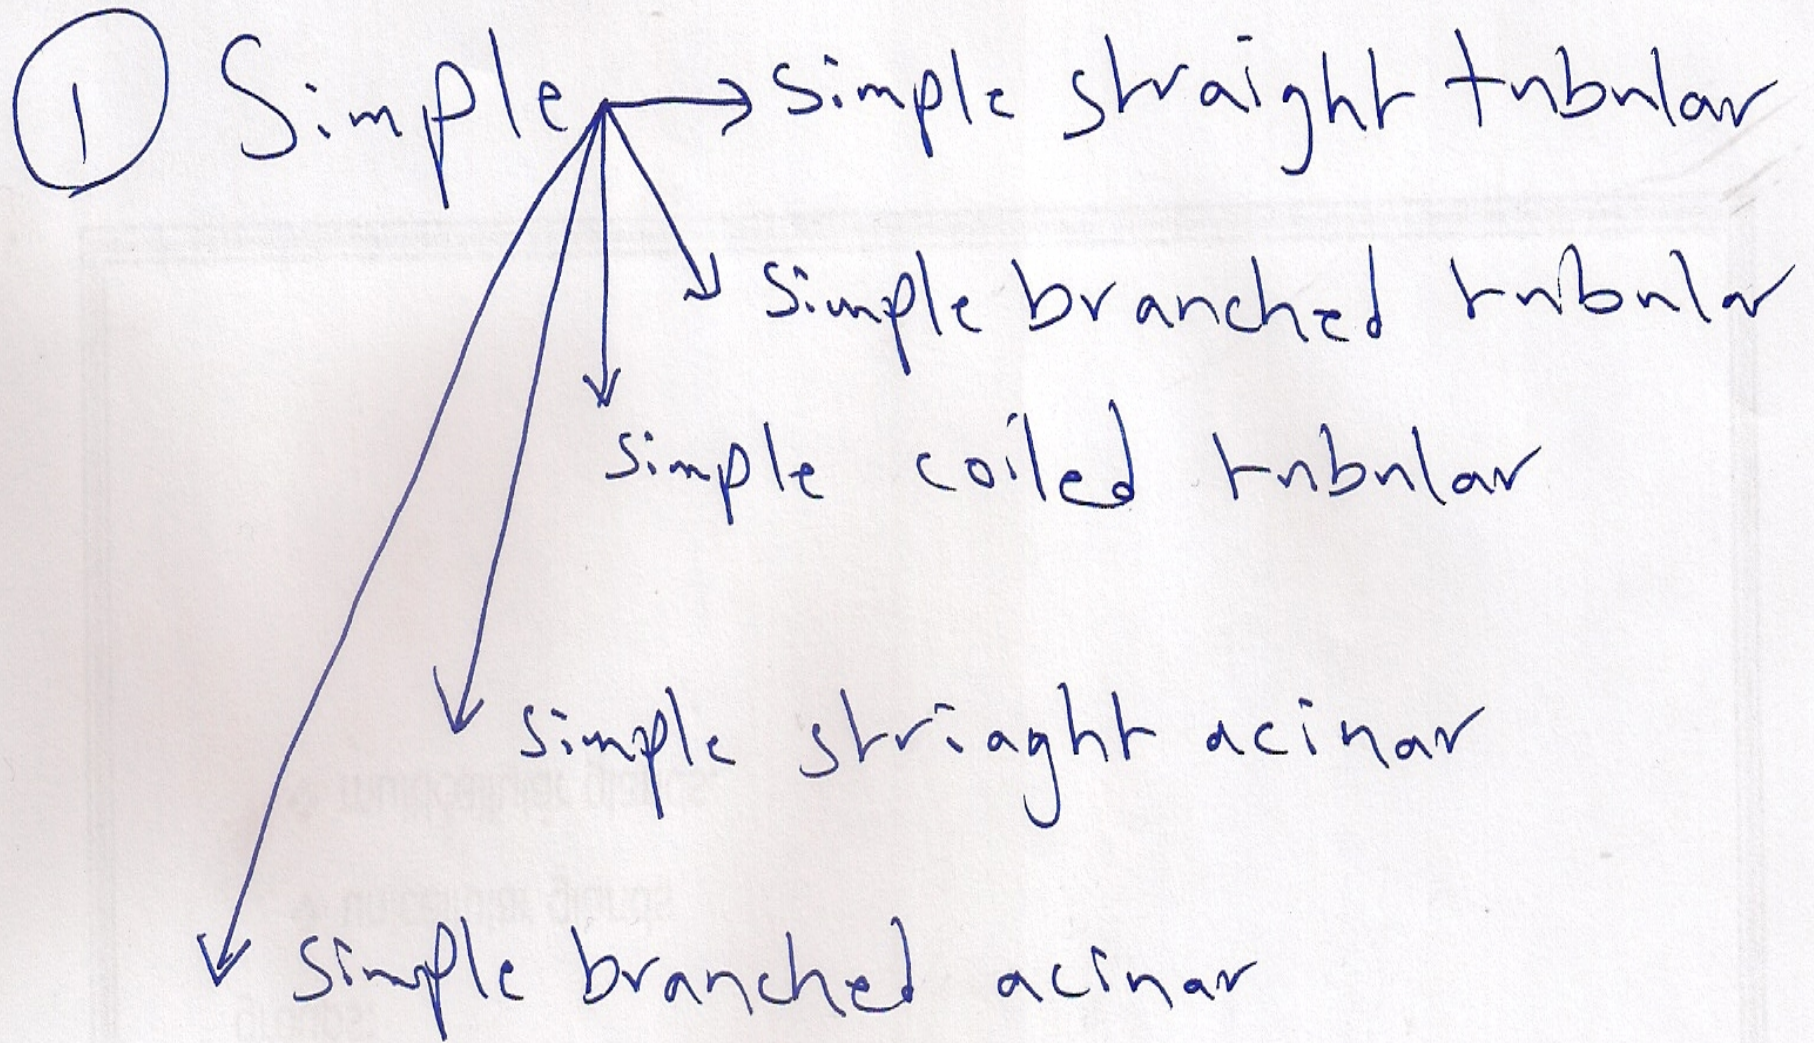 ① Simple → simple straight tubular
simple branched tubular
simple coiled tubular
simple striaght acinar
simple branched acinar